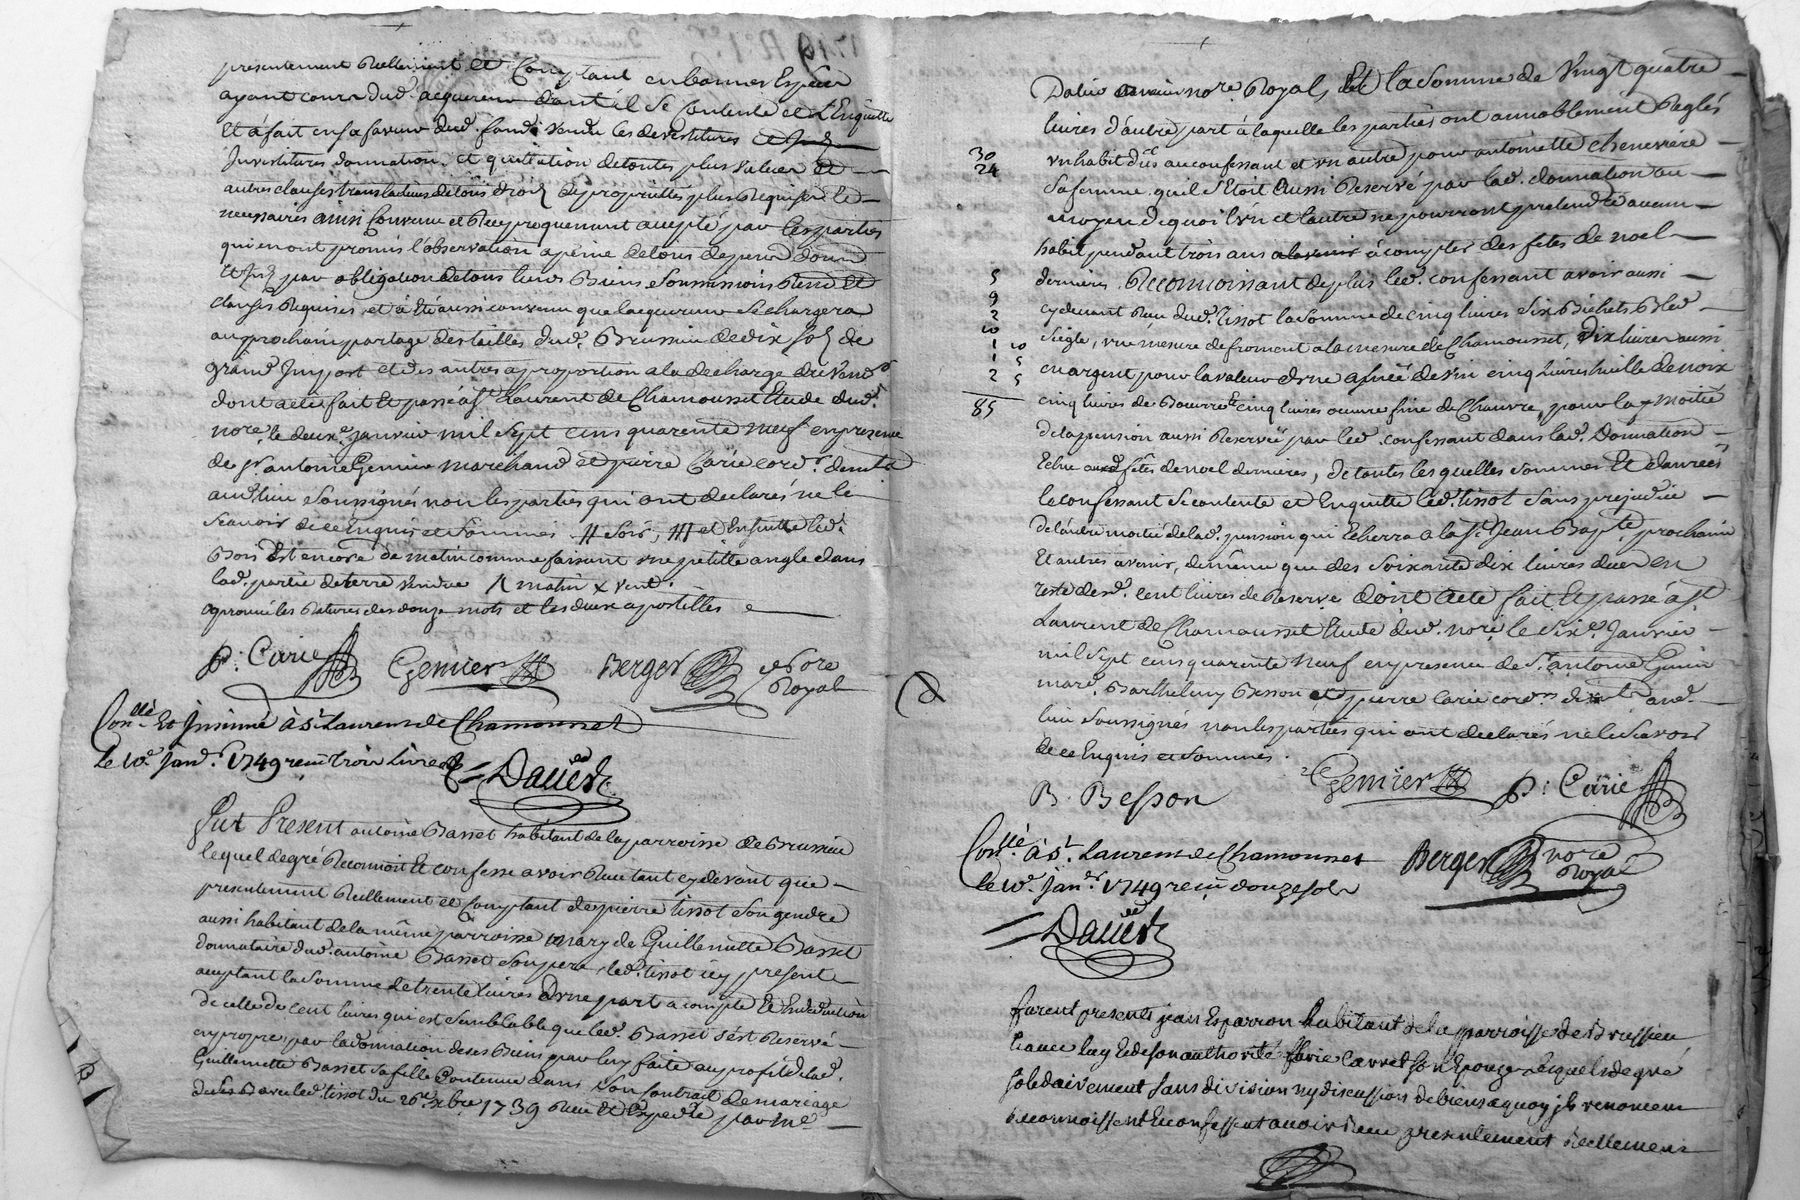 presentement Reellement et Comptant en bonnes Especes
ayant cours dud. acquereur dont il se Contente et l'Enquitte
Et a fait en sa faveur dud. fond vendu les devestitures et
Investitures donnation et quittation de toutes plus values et
autres clauses translatives de tous droits de proprieté plus Requises et
necessaires ainsi Convenu et Reciproquement accepté par les parties
qui en ont promis l'observation a peine de tous depens dom
et par obligation de tous leurs Biens Soumissions Renons et
clauses Requises, et a été aussi convenu que lacquereur se chargera
au prochain partage des tailles dud. Brussieu de dix sols de
grand Import et des autres a proportion a la decharge du vend
dont acte fait Et passé a St Laurent de Chamousset Etude dud.
nore. le deuxe. janvier mil sept cens quarente neuf en presence
de sr antoine Gemier marchand et pierre Carie cord. dem
aud. lieu soussignés non les parties qui ont declarés ne le
scavoir de ce Enquis et Sommés # soir, ## et Ensuitte led.
Bois Est encore de matin comme faisant une petitte angle dans
lad. partie de terre vendue matin x vent
aprouvé les Ratures des douze mots et les deux apostilles
P: Carie Gemier Berger nore Royal
Conllé Et Insinué à St Laurens de Chamousset
le 10e janr. 1749 receu trois livres
Daued
Fut Present antoine Basset habitant de la parroisse de Brussieu
lequel de gré Reconnoit Et confesse avoir Receu tant cy devant que
presentement Reellement et Comptant de pierre tissot son gendre
aussi habitant de la même parroisse mary de Guillemette Basset
donnataire dud. antoine Basset son pere, led. tissot icy present
acceptant la somme de trente livres d'une part a compte Et en deduction
de celle de cent livres qui est semblable que led. Basset s'est Reservé
en propre par la donnation de ses Biens par luy faite au profit de lad.
Guillemette Basset sa fille Contenue dans son Contrat de mariage
avec led. tissot du 26e xbre 1739 Receu Et Expedié par me
Royal, Et la somme de Vingt quatre
livres d'autre part à laquelle les parties ont amiablement Reglés
30 un habit dû au confessant et un autre pour antoinette chenevière
24 sa femme qu'il s'étoit aussi Reservé par lad. donnation au
moyen de quoi l'un et l'autre ne pourront pretendre aucun
habit pendant trois ans à compter des fetes de noel
5 dernieres. Reconnoissant de plus led. confessant avoir aussi
9 cy devant Receu dud. tissot la somme de cinq livres six Bichets Bled
2
10 siegle, une mesure de froment a la mesure de Chamousset, dix livres aussi
1 10
1 5 en argent pour la valeur d'une asnée de vin cinq livres huille de noix
2 5
85 cinq livres de Beurre et cinq livres œuvre fine de Chanvre, pour la moitié
de la pension aussi Reservée par led. confessant dans lad. Donnation
Echue aux fêtes de noel dernieres, de toutes lesquelles sommes Et danrées
le confessant se contente et Enquitte led. tissot sans prejudice
de l'autre moitié de lad. pension qui Echerra a la St Jean Bapte. prochaine
Et autres avenir, de même que des soixante dix livres dues en
reste desd. cent livres de Reserve dont acte fait Et passé à St
Laurent de Chamousset Etude dud. nore le sixe. Janvier
mil sept cens quarente neuf en presence de Sr. antoine Gemier
mard. Barthelmy Besson et pierre Carie cordrs. dt aud.
lieu soussignés non les parties qui ont declarés ne le scavoir
de ce Enquis et sommés.
B. Besson Gemier P: Carie
Conllé à St. Laurens de Chamousset Berger nore Royal
le 10e janr. 1749 receu douze sols
Daued
furent presents jean Esparron habitant de la parroisse de Brussieu
et de son authorité son Epouse lesquels de gré
solidairement sans division ny discussion de biens a quoy ils renoncent
reconnoissent Et confessent avoir Receu presentement Reellement